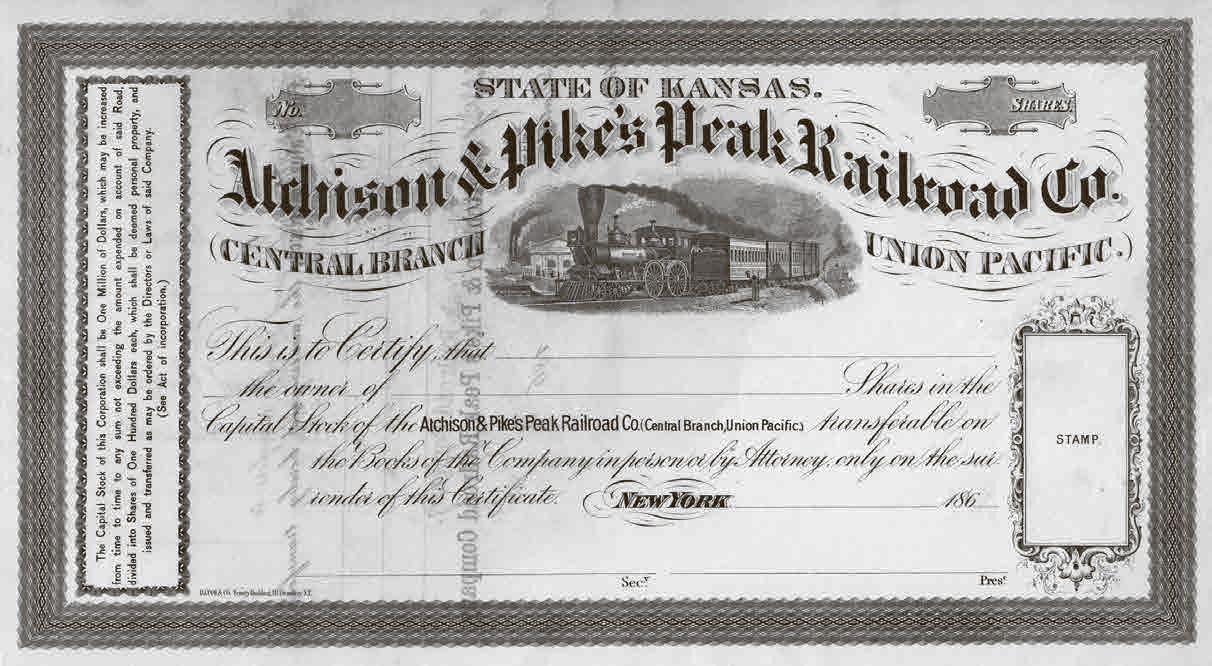 The Capital Stock of this Corporation shall be One Million of Dollars, which may be increased
from time to time to any sum not exceeding the amount expended on account of said Road,
divided into Shares of One Hundred Dollars each, which shall be deemed personal property, and
issued and transferred as may be ordered by the Directors or Laws of said Company.
(See Act of incorporation.)
No.
STATE OF KANSAS.
SHARES
Atchison & Pike's Peak Railroad Co.
(CENTRAL BRANCH UNION PACIFIC.)
This is to Certify, that
the owner of Shares in the
Capital Stock of the Atchison & Pike's Peak Railroad Co. (Central Branch, Union Pacific.) transferable on
the Books of the Company in person or by Attorney, only on the sur
render of this Certificate. NEW YORK 186
STAMP
Secy. Prest.
& Co. Trinity Building, 111 Broadway N.Y.